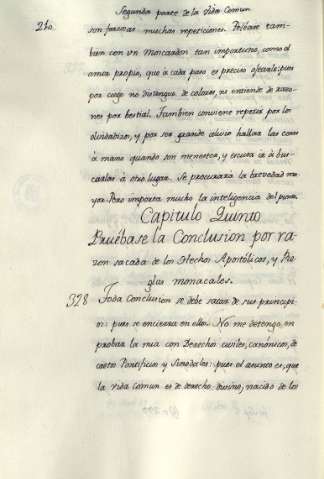 Segunda parte de la Vida Comun
210
son forzosas muchas repeticiones. Pelease tam-
bien con un Moncardon tan importuno, como el
amor propio, que à cada paso es preciso
por ciego no distingue de colores, ni entiende de razo-
nes por bestial. Tambien conviene repetir por los
olvidadizos, y por ser grande alivio hallar las cosas
à mano quando son menester, y escusa ir à bus-
carlas à otro lugar. Se procurará la brevedad ma-
yor. Pero importa mucho la inteligencia del
Capitulo Quinto
Pruébase la Conclusion por ra-
zon sacada de los Hechos Apostólicos, y Re-
glas monacales.
328 Toda Conclusion se debe sacar de sus principi-
os: pues se encierra en ellos. No me detengo en
probar la mia con Derechos civiles, canónicos, de-
cretos Pontificios y Sinodales: pues el asunto es, que
la vida comun es de derecho divino, nacido de los